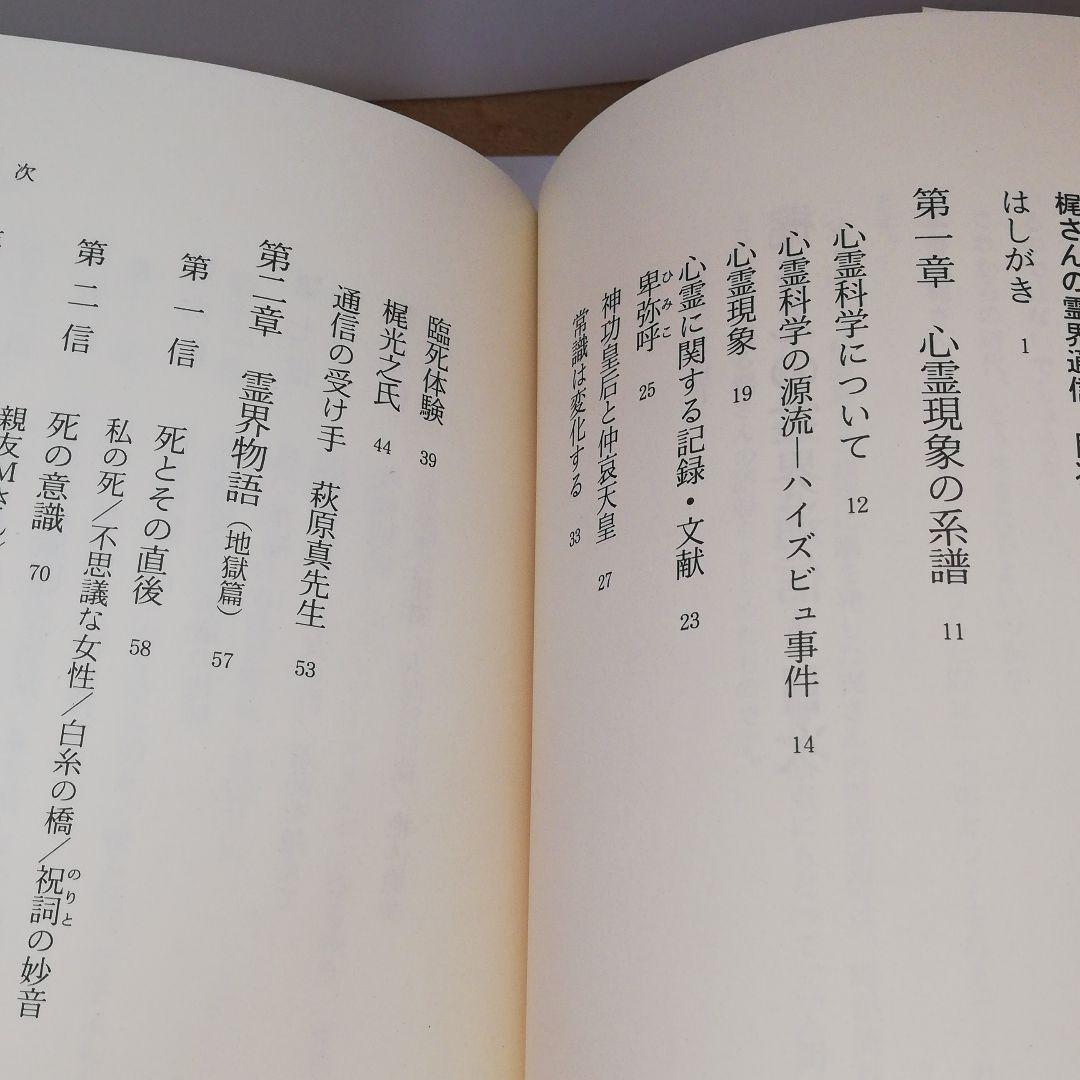 梶さんの霊界通信
はしがき 1
第一章 心霊現象の系譜 11
心霊科学について 12
心霊科学の源流―ハイズビュ事件 14
心霊現象 19
心霊に関する記録・文献 23
卑弥呼 25
ひみこ
神功皇后と仲哀天皇 27
常識は変化する 33
臨死体験 39
梶光之氏 44
通信の受け手 萩原真先生 53
第二章 霊界物語（地獄篇） 57
第一信 死とその直後 58
私の死／不思議な女性／白糸の橋／祝詞の妙音
のりと
第二信 死の意識 70
親友Mさん
次